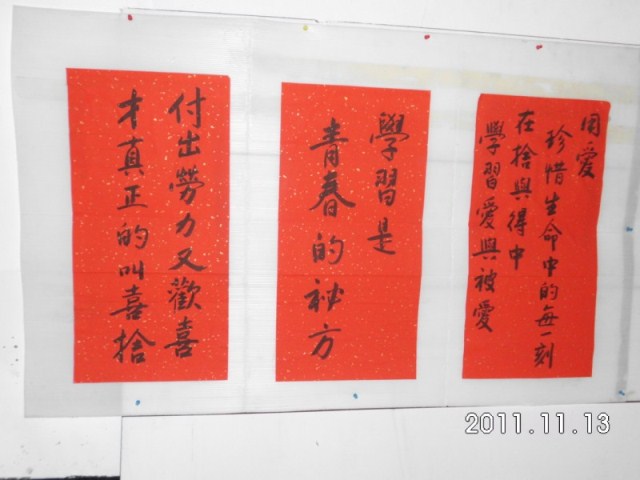 用愛
珍惜生命中的每一刻
在捨與得中
學習愛與被愛
學習是
青春的祕方
付出勞力又歡喜
才真正的叫喜捨
2011.11.13